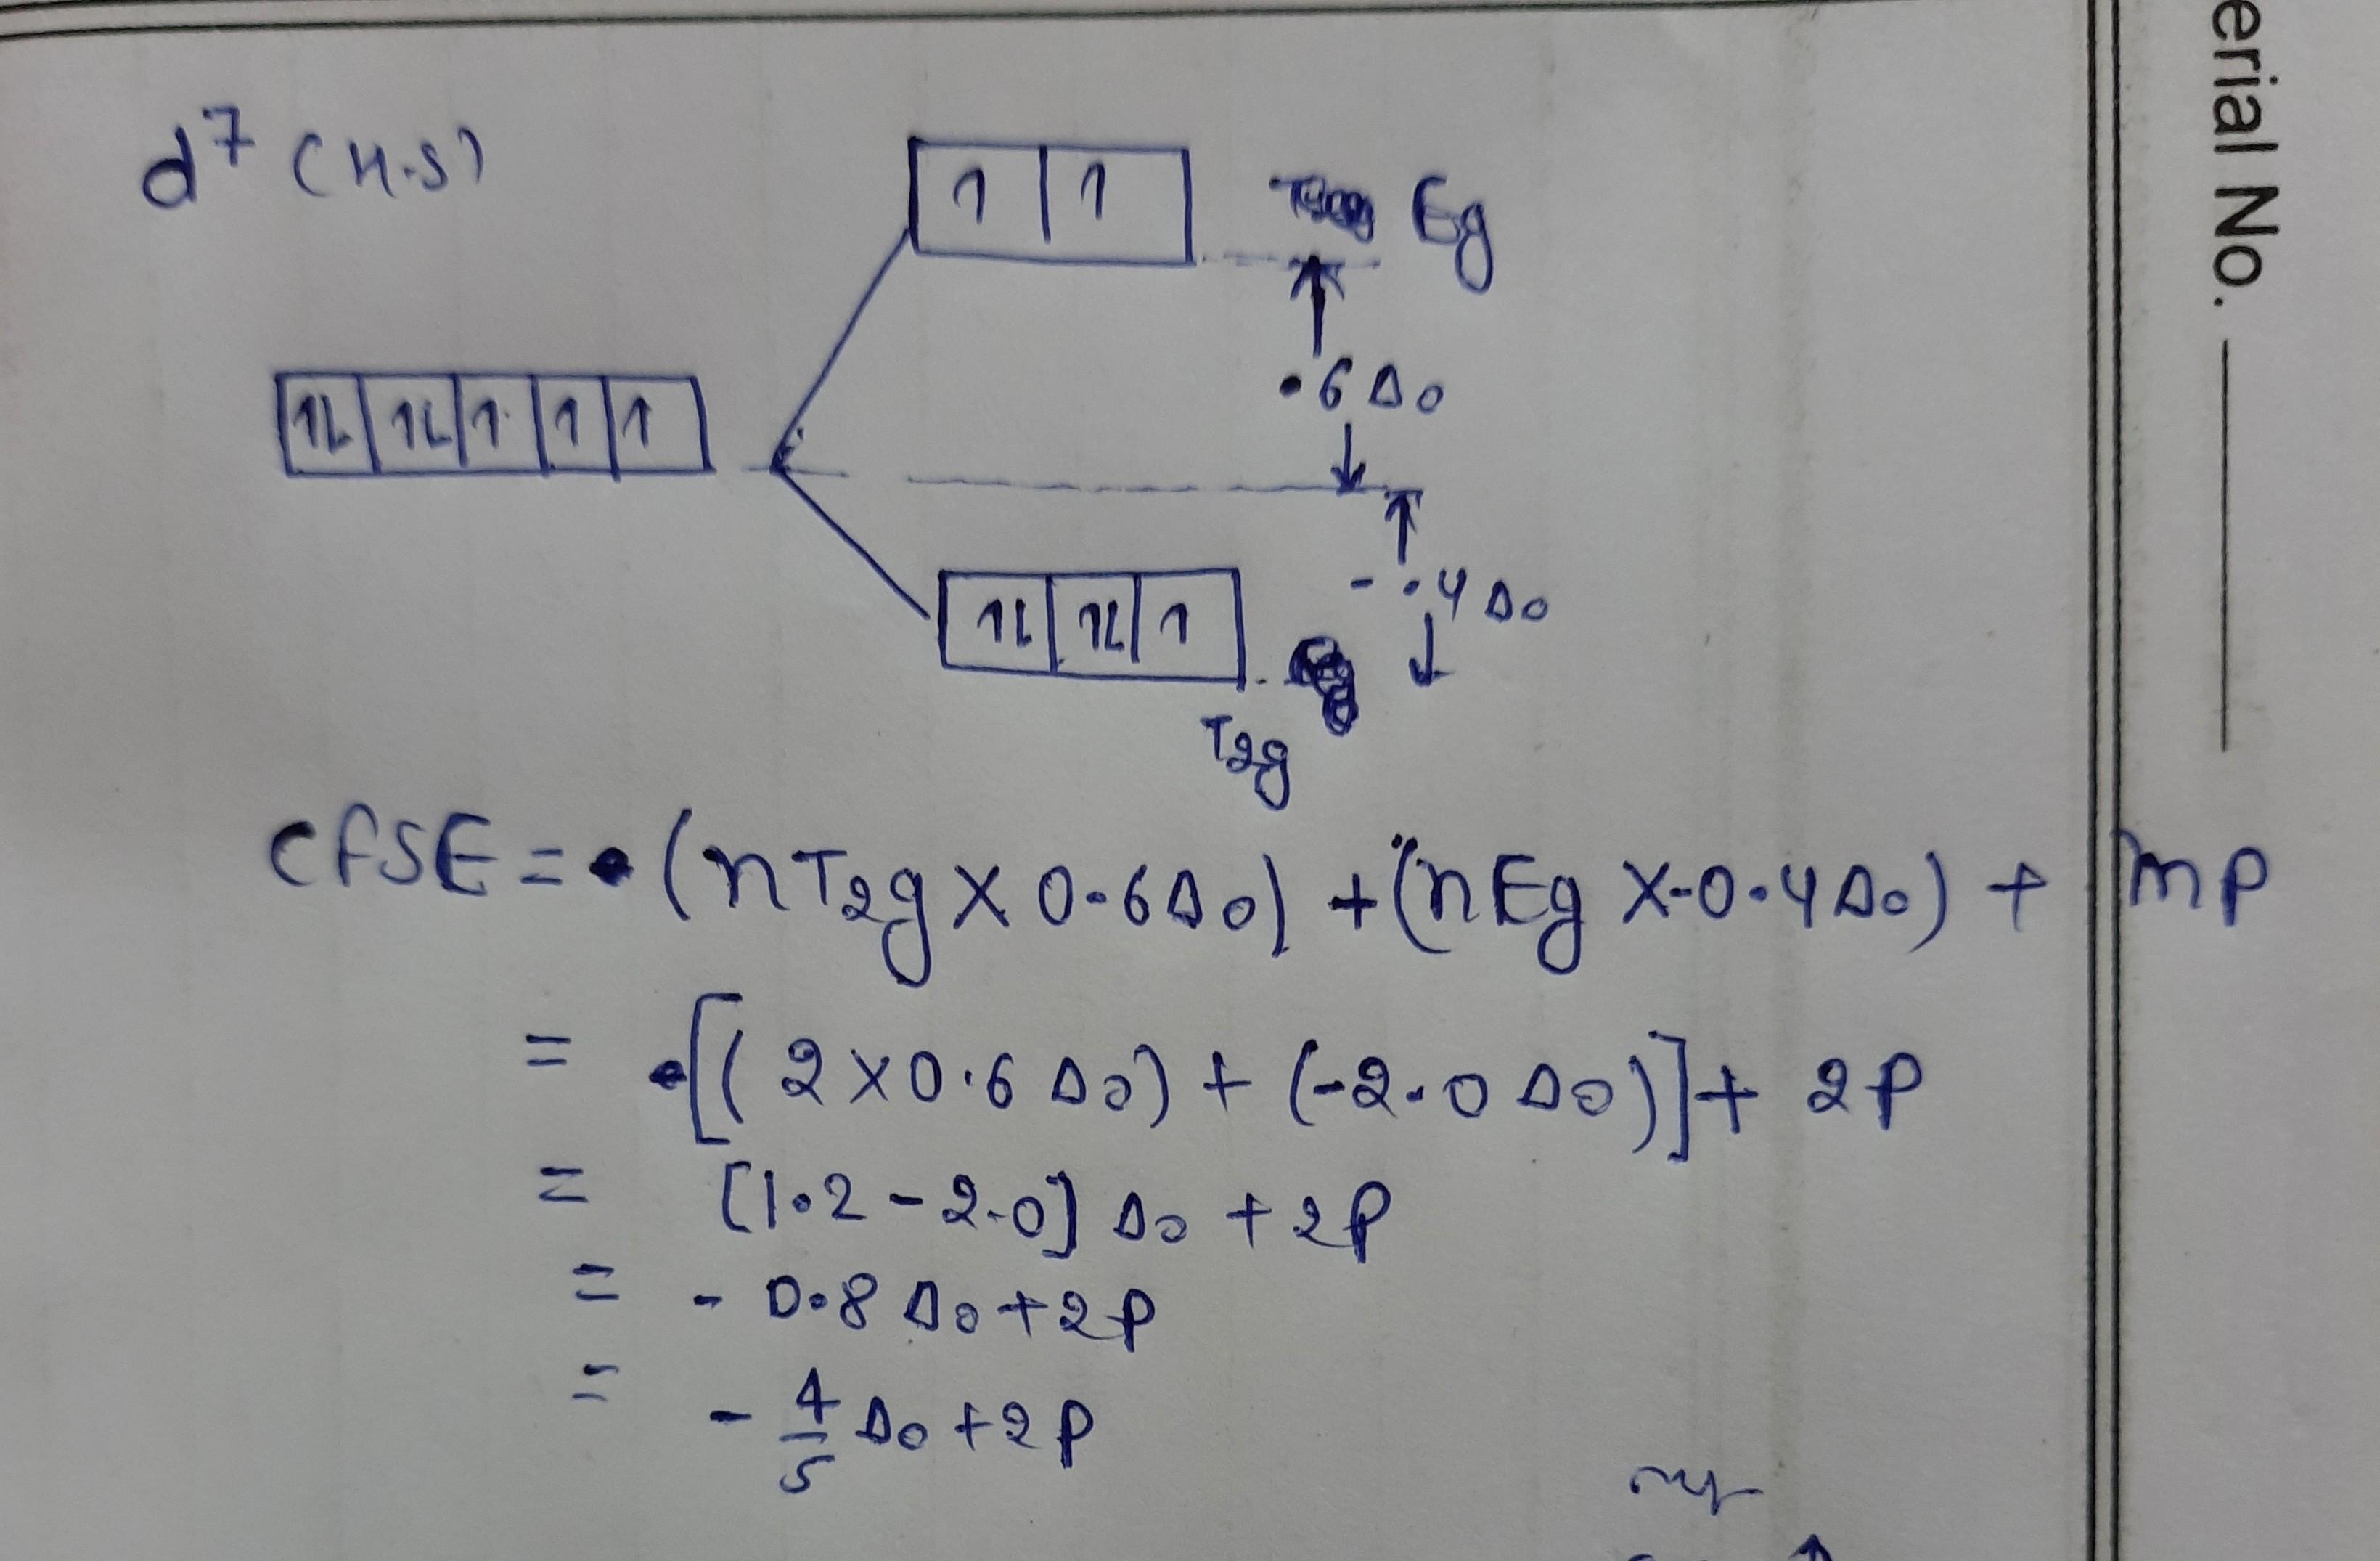 erial No.
d⁷ (H.S)
1 1 Eg
.6 Δo
1L 1L 1 1 1
- .4 Δo
1L 1L 1
T2g
CFSE = (nT2g X 0.6Δo) + (nEg X-0.4Δo) + mP
= [( 2 X 0.6 Δo) + (-2.0 Δo)] + 2P
= [1.2 - 2.0] Δo + 2P
= - 0.8 Δo + 2P
= - 4/5 Δo + 2P